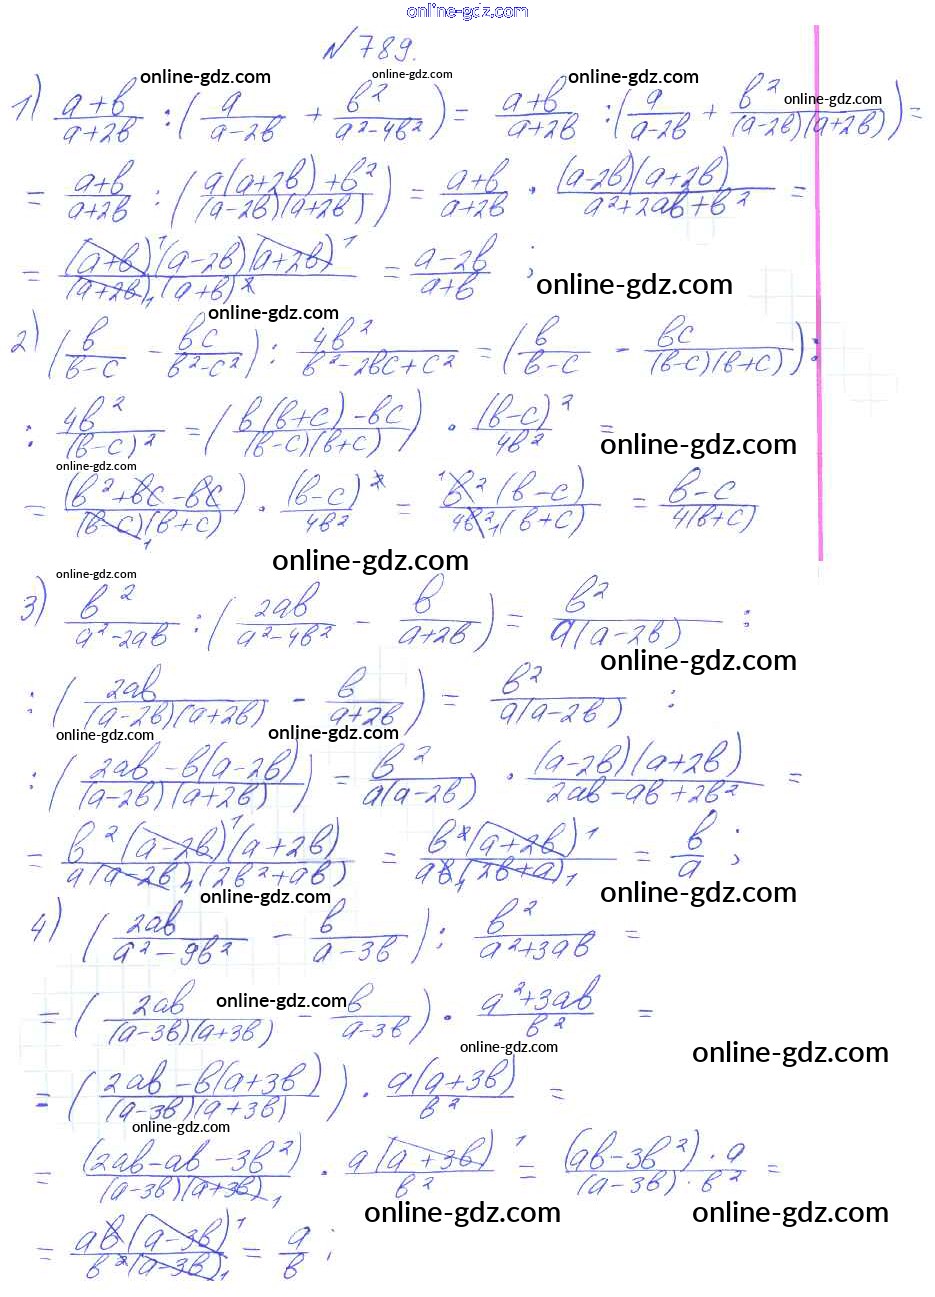 online-gdz.com
№789.
online-gdz.com online-gdz.com online-gdz.com online-gdz.com
1) (a+b)/(a+2b) : (a/(a-2b) + b²/(a²-4b²)) = (a+b)/(a+2b) : (a/(a-2b) + b²/((a-2b)(a+2b))) =
= (a+b)/(a+2b) : ((a(a+2b)+b²)/((a-2b)(a+2b))) = (a+b)/(a+2b) · ((a-2b)(a+2b))/(a²+2ab+b²) =
= ((a+b)¹(a-2b)(a+2b)¹)/((a+2b)₁(a+b)²) = (a-2b)/(a+b) ;
online-gdz.com
online-gdz.com
2) (b/(b-c) - bc/(b²-c²)) : 4b²/(b²-2bc+c²) = (b/(b-c) - bc/((b-c)(b+c))) :
: 4b²/(b-c)² = ((b(b+c)-bc)/((b-c)(b+c))) · (b-c)²/4b² =
online-gdz.com
online-gdz.com
= (b²+bc-bc)/((b-c)₁(b+c)) · (b-c)²/4b² = (¹b²(b-c))/(4b²₁(b+c)) = (b-c)/(4(b+c))
online-gdz.com
online-gdz.com
3) b²/(a²-2ab) : (2ab/(a²-4b²) - b/(a+2b)) = b²/(a(a-2b)) :
online-gdz.com
: (2ab/((a-2b)(a+2b)) - b/(a+2b)) = b²/(a(a-2b)) :
online-gdz.com online-gdz.com
: ((2ab-b(a-2b))/((a-2b)(a+2b))) = b²/(a(a-2b)) · ((a-2b)(a+2b))/(2ab-ab+2b²) =
= (b²(a-2b)¹(a+2b))/(a(a-2b)₁(2b²+ab)) = (b²(a+2b)¹)/(ab₁(2b+a)₁) = b/a ;
online-gdz.com online-gdz.com
4) (2ab/(a²-9b²) - b/(a-3b)) : b²/(a²+3ab) =
online-gdz.com
= (2ab/((a-3b)(a+3b)) - b/(a-3b)) · (a²+3ab)/b² =
online-gdz.com online-gdz.com
= ((2ab-b(a+3b))/((a-3b)(a+3b))) · (a(a+3b))/b² =
online-gdz.com
= (2ab-ab-3b²)/((a-3b)(a+3b)₁) · (a(a+3b)¹)/b² = ((ab-3b²)·a)/((a-3b)·b²) =
online-gdz.com online-gdz.com
= (ab(a-3b)¹)/(b²(a-3b)₁) = a/b ;